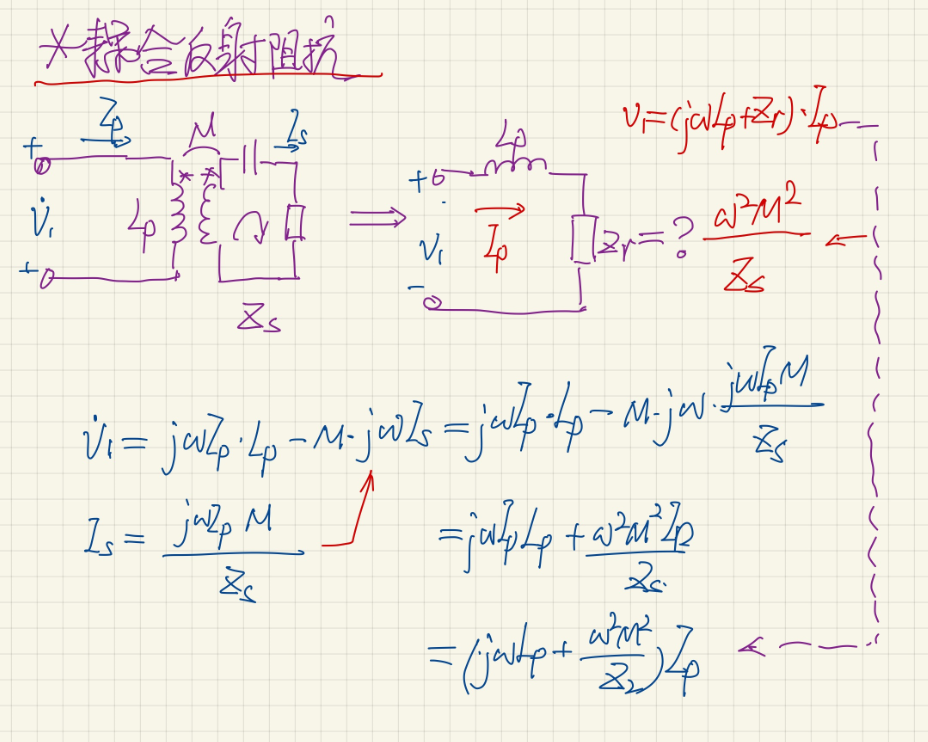 *耦合反射阻抗
İp
M
İs
+
* *
V̇₁
Lp
+
Zs
Lp
+
V₁
Ip
-
Zr=? ω²M²/Zs
V₁=(jωLp+Zr)·Ip
V̇₁ = jωIp·Lp - M·jωIs = jωIp·Lp - M·jω·jωIpM/Zs
Is = jωIpM/Zs
= jωIpLp + ω²M²Ip/Zs
= (jωLp + ω²M²/Z₂)Ip